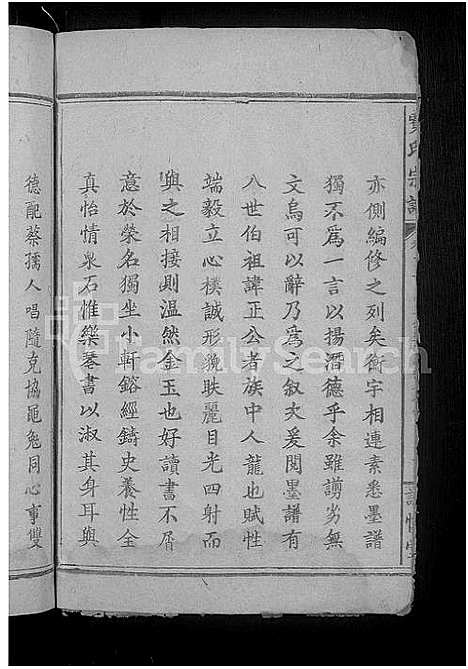 亦側編修之列矣衡宇相連素悉墨譜
獨不爲一言以揚潛德乎余雖謭劣無
文烏可以辭乃爲之叙文爰閱墨譜有
八世伯祖諱正公者族中人龍也賦性
端毅立心樸誠形貌昳麗目光四射而
與之相接則温然金玉也好讀書不屑
意於榮名獨坐小軒鎔經鑄史養性全
真怡情泉石惟樂琴書以淑其身耳與
德配蔡孺人唱隨克協黽勉同心事雙
氏宗譜
FamilySearch